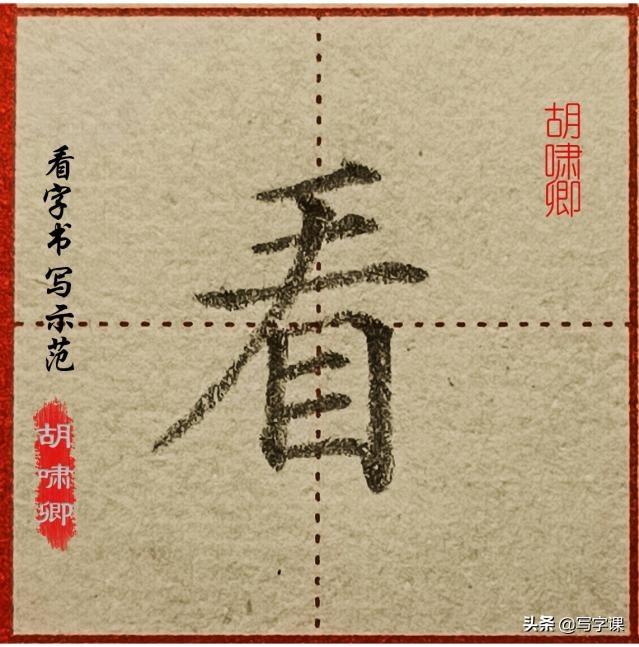 看
看字书写示范
胡啸卿
胡啸卿
头条 @写字课